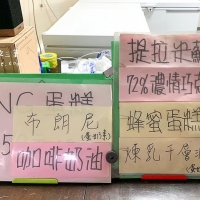 NG蛋糕
布朗尼
(蛋奶素)
咖啡奶油
5
提拉米蘇
72%濃情巧克
蜂蜜蛋糕
煉乳千層